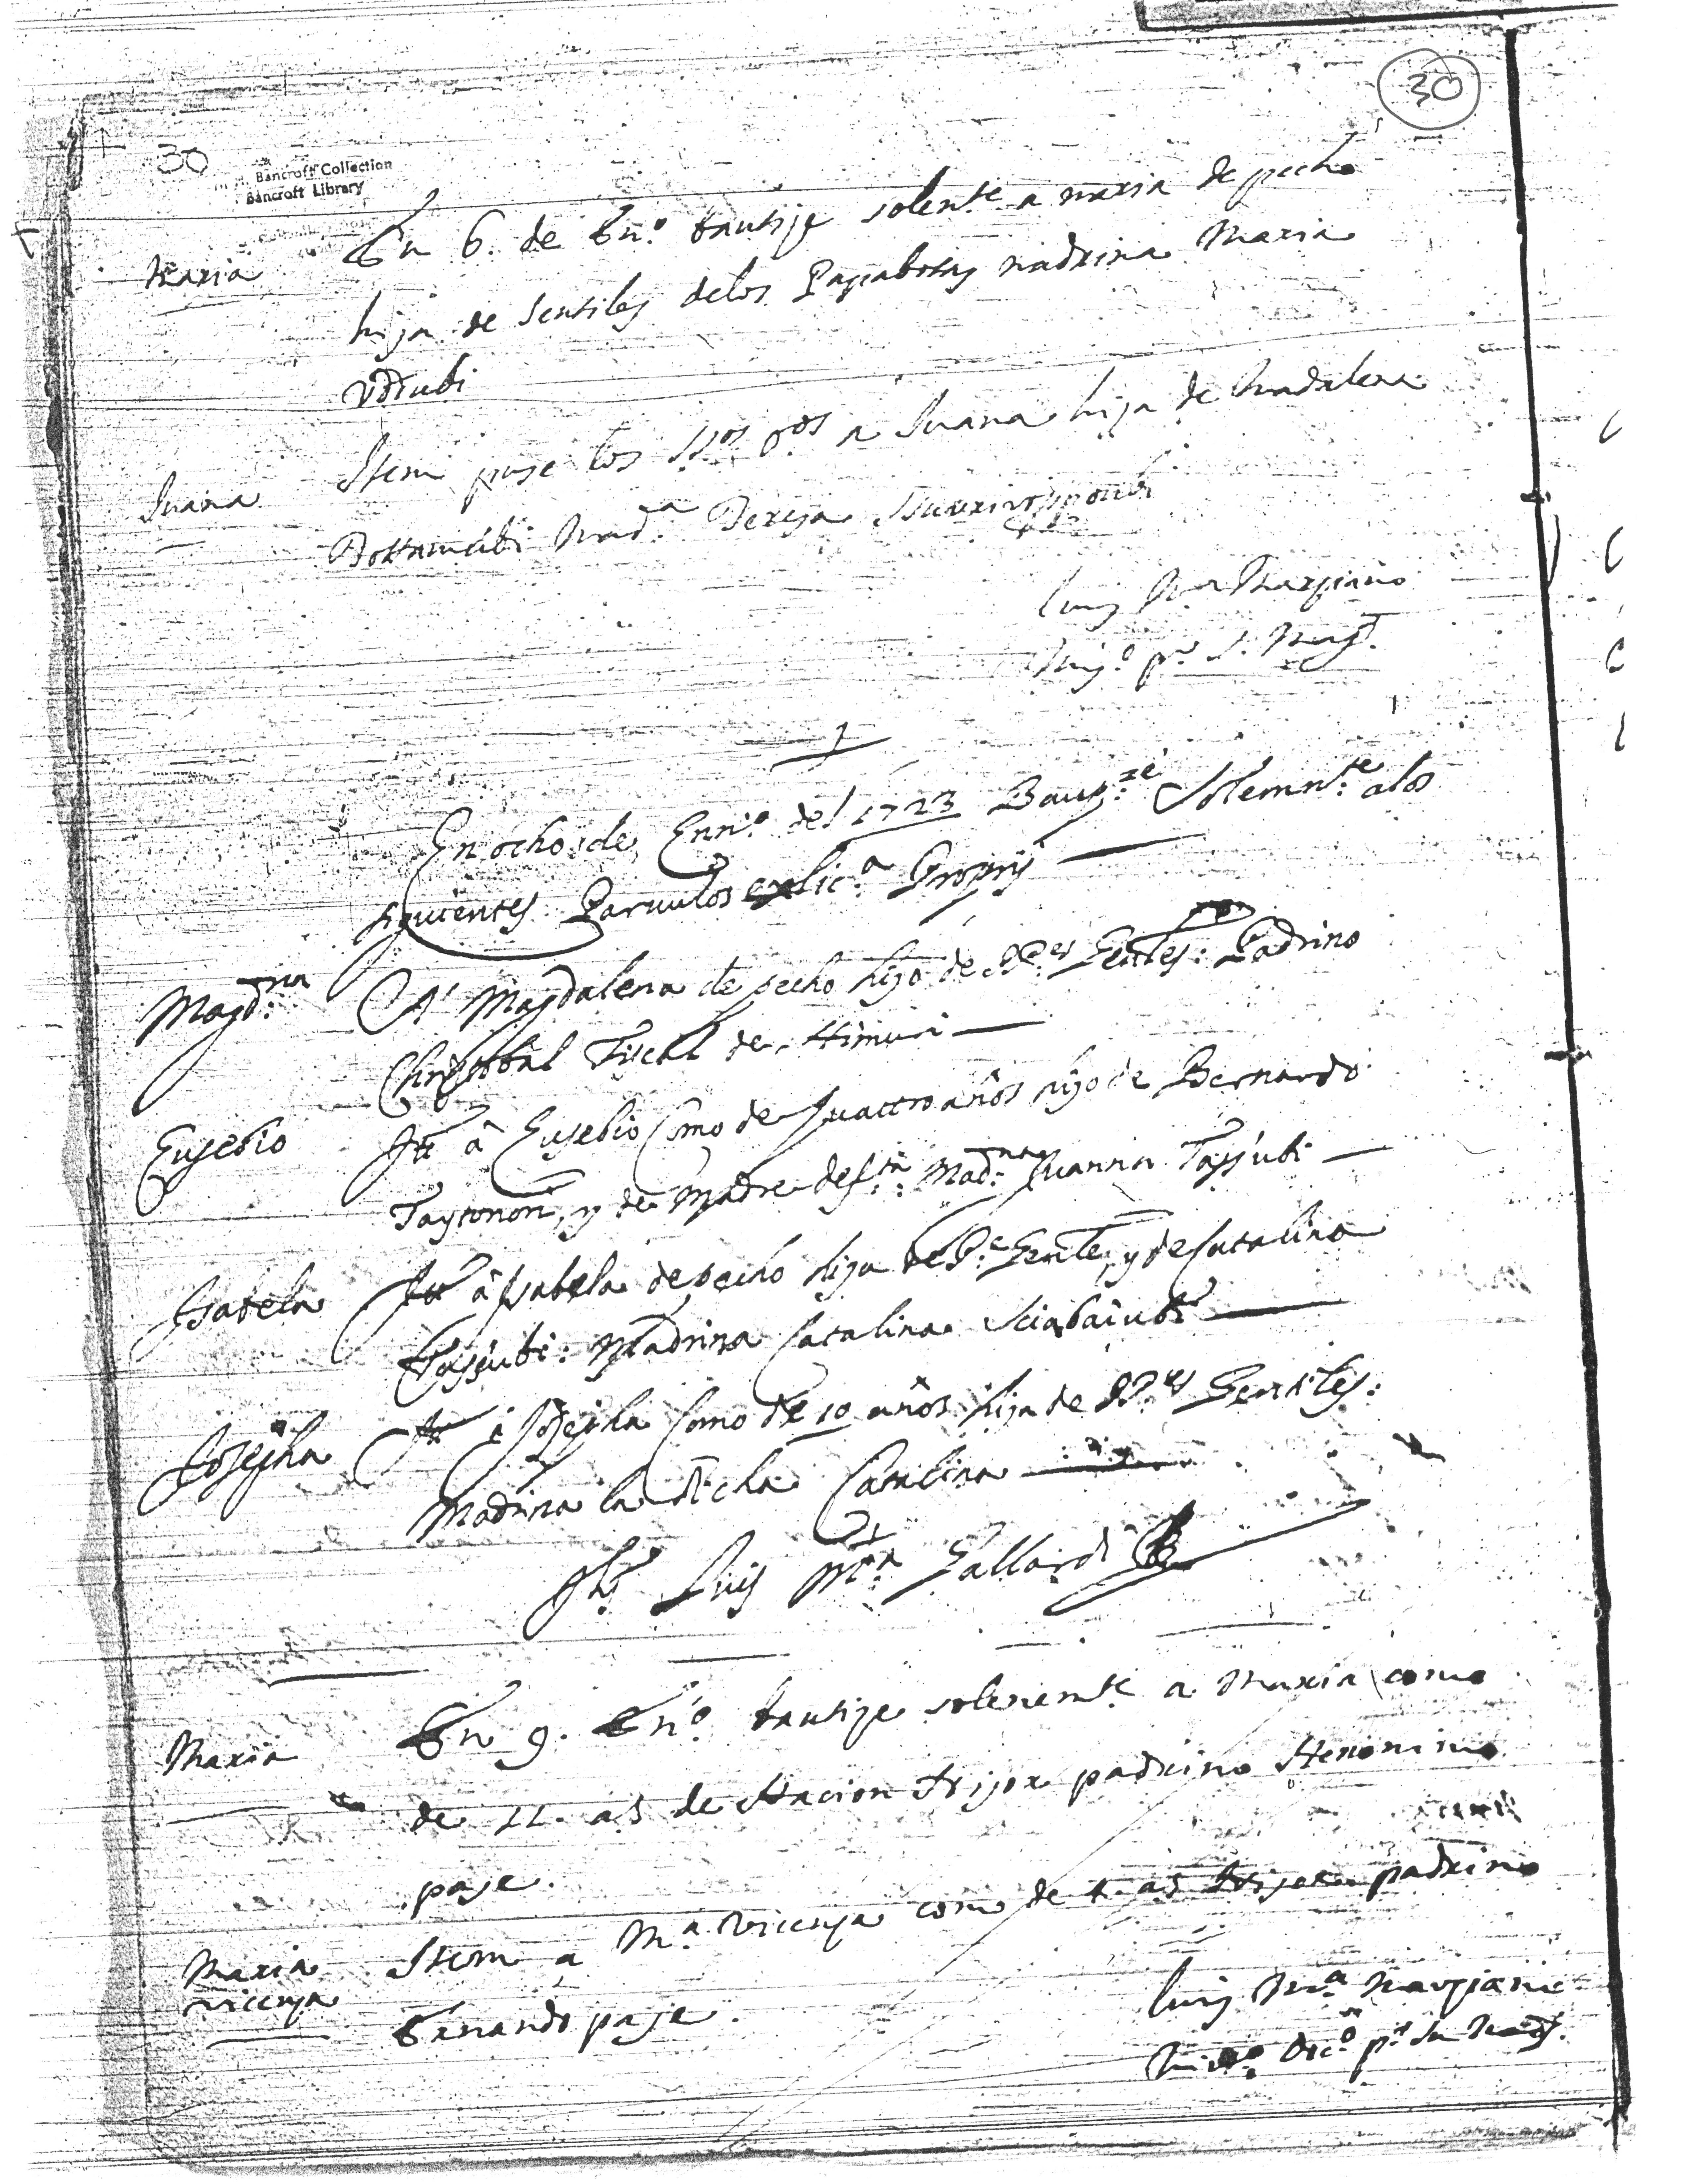 30
30
Bancroft Collection
Bancroft Library
Maria
En 6. de En.º bautise solente a maria de pecho
hija de Gentiles delos Papabotas madrina Maria
Juana
Item puse los S.tos O.os a Juana hija de Madalena
Mad.a Teresa
Luis M.a Marciano
Mis.º p.r S. Mag.d
En ocho de Enn.º del 1723 Baup.zé Solemn.te alos
siguientes Paruulos
Magd.na
A Magdalena de pecho hijo de PP.es Gentes: Padrino
Christobal Fiscal de Himuri
Eusebio
Itt â Eusebio Como de quattro años hijo de Bernardo
y de Madre Mad.na Juanna Tassubi
Isabela
Itt â Isabela de pecho hija de P.e Gente, y de Catalina
Tassubi: Madrina Catalina
Josepha
Itt â Josepha Como de 10 años hija de PP.es Gentiles:
Madrina la dicha Catalina
Jhs Luis M.a Gallardi
Maria
En 9. En.º bautise solenemte a Maria como
de 11. a.s de Nacion Nijora padrino
paje.
Maria
Vicenta
Item a M.a Vicenta como de a.s Nijora padrino
paje.
Luis M.a Marciano
p.r Su Mag.d